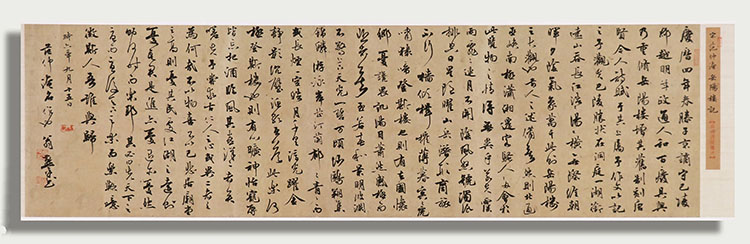 宋范仲淹岳陽樓記
慶曆四年春滕子京謫守巴陵
郡越明年政通人和百廢具興
乃重修岳陽樓增其舊制刻唐
賢今人詩賦于其上屬予作文以記
之予觀夫巴陵勝狀在洞庭一湖銜
遠山吞長江浩浩湯湯橫無際涯朝
暉夕陰氣象萬千此則岳陽樓
之大觀也前人之述備矣然則北通
巫峽南極瀟湘遷客騷人多會於
此覽物之情得無異乎若夫霪
雨霏霏連月不開陰風怒號濁浪
排空日星隱曜山岳潛形商旅
不行檣傾楫摧薄暮冥冥虎
嘯猿啼登斯樓也則有去國懷
鄉憂讒畏譏滿目蕭然感極而
悲者矣至若春和景明波瀾
不驚上下天光一碧萬頃沙鷗翔集
錦鱗游泳岸芷汀蘭郁郁青青而
或長煙一空皓月千里浮光躍金
靜影沉璧漁歌互答此樂何
極登斯樓也則有心曠神怡寵辱
皆忘把酒臨風其喜洋洋者矣
嗟夫予嘗求古仁人之心或異二者之
為何哉不以物喜不以己悲居廟堂
之高則憂其民處江湖之遠則
憂其君是進亦憂退亦憂然
則何時而樂耶其必曰先天下之
憂而憂後天下之樂而樂歟噫
微斯人吾誰與歸
時六年九月十五日
范仲淹